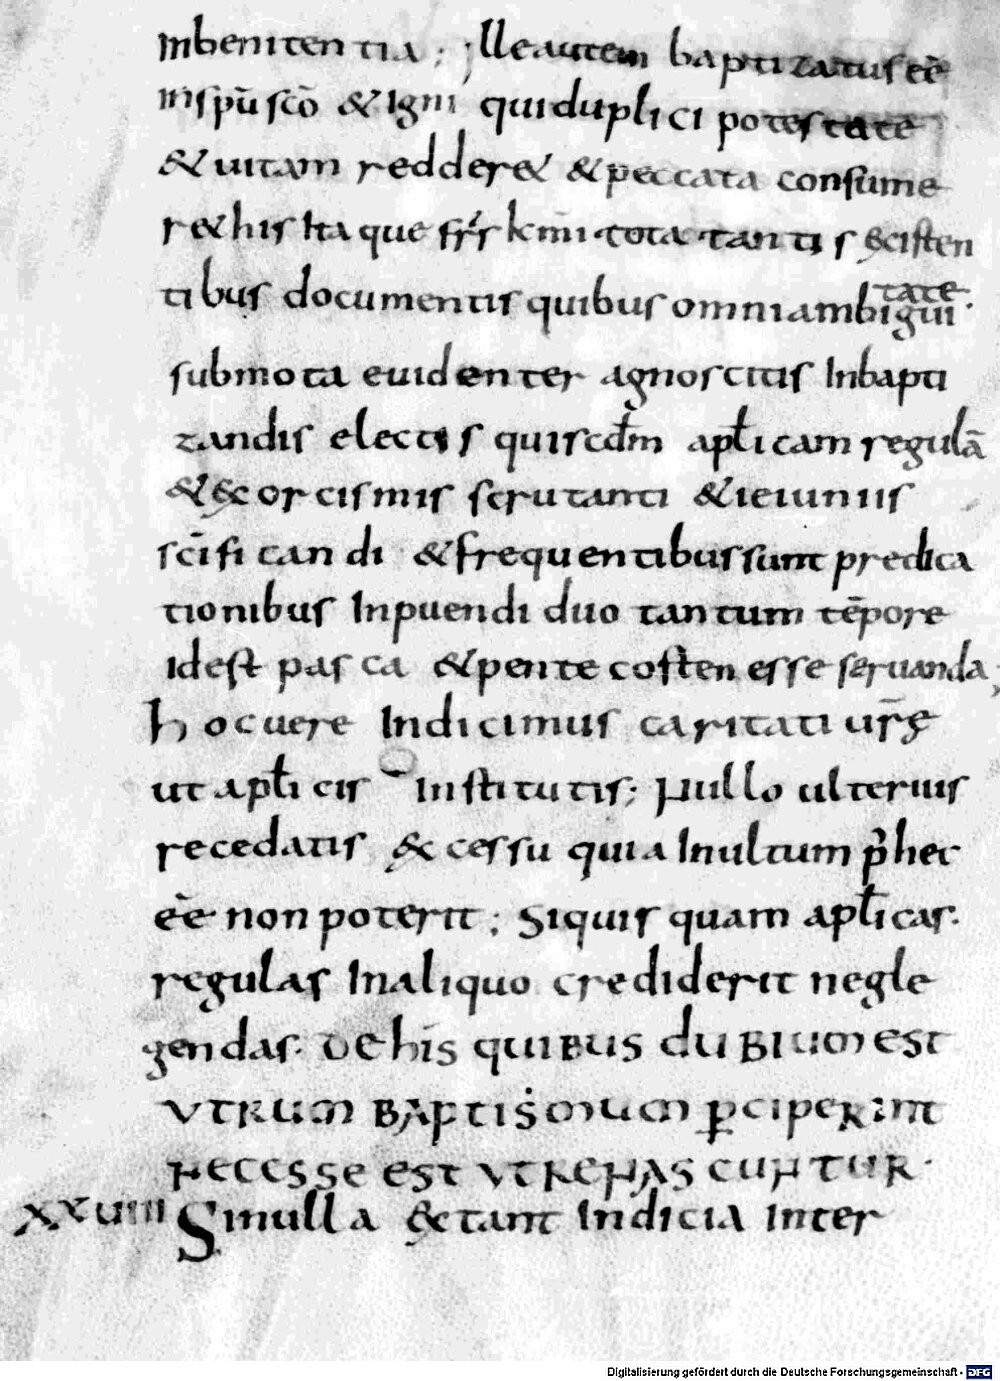 Inbenitentia; Ille autem baptizatus eē
Inspū scō & Igni qui duplici potestate
& uitam redder& & peccata consume
r& his Itaque frs̄ kmi tota tantis ęcisten
tibus documentis quibus omni ambigui
tate
submota euidenter agnoscitis Inbapti
zandis electis qui scdm̄ apl̄icam regulā
& ęcorcismis scrutanti & ieiuniis
scīficandi & frequentibus sunt predica
tionibus Inpuendi duo tantum tēpore
idest pasca & pentecosten esse seruanda;
hocuere Indicimus caritati ur̄ę
ut apl̄icis Institutis; Nullo ulterius
recedatis ęccessu quia Inultum p̄ hec
eē non poterit; Siquis quam apl̄icas.
regulas Inaliquo crediderit negle
gendas. De his quibus dubium est
utrum baptismum ꝑciperint
necesse est ut renascuntur.
xxuiiii Sinulla ęctant Indicia inter
Digitalisierung gefördert durch die Deutsche Forschungsgemeinschaft · DFG